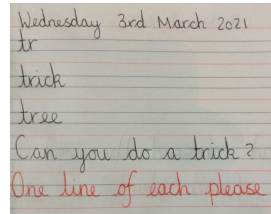 Wednesday 3rd March 2021
tr
trick
tree
Can you do a trick?
One line of each please